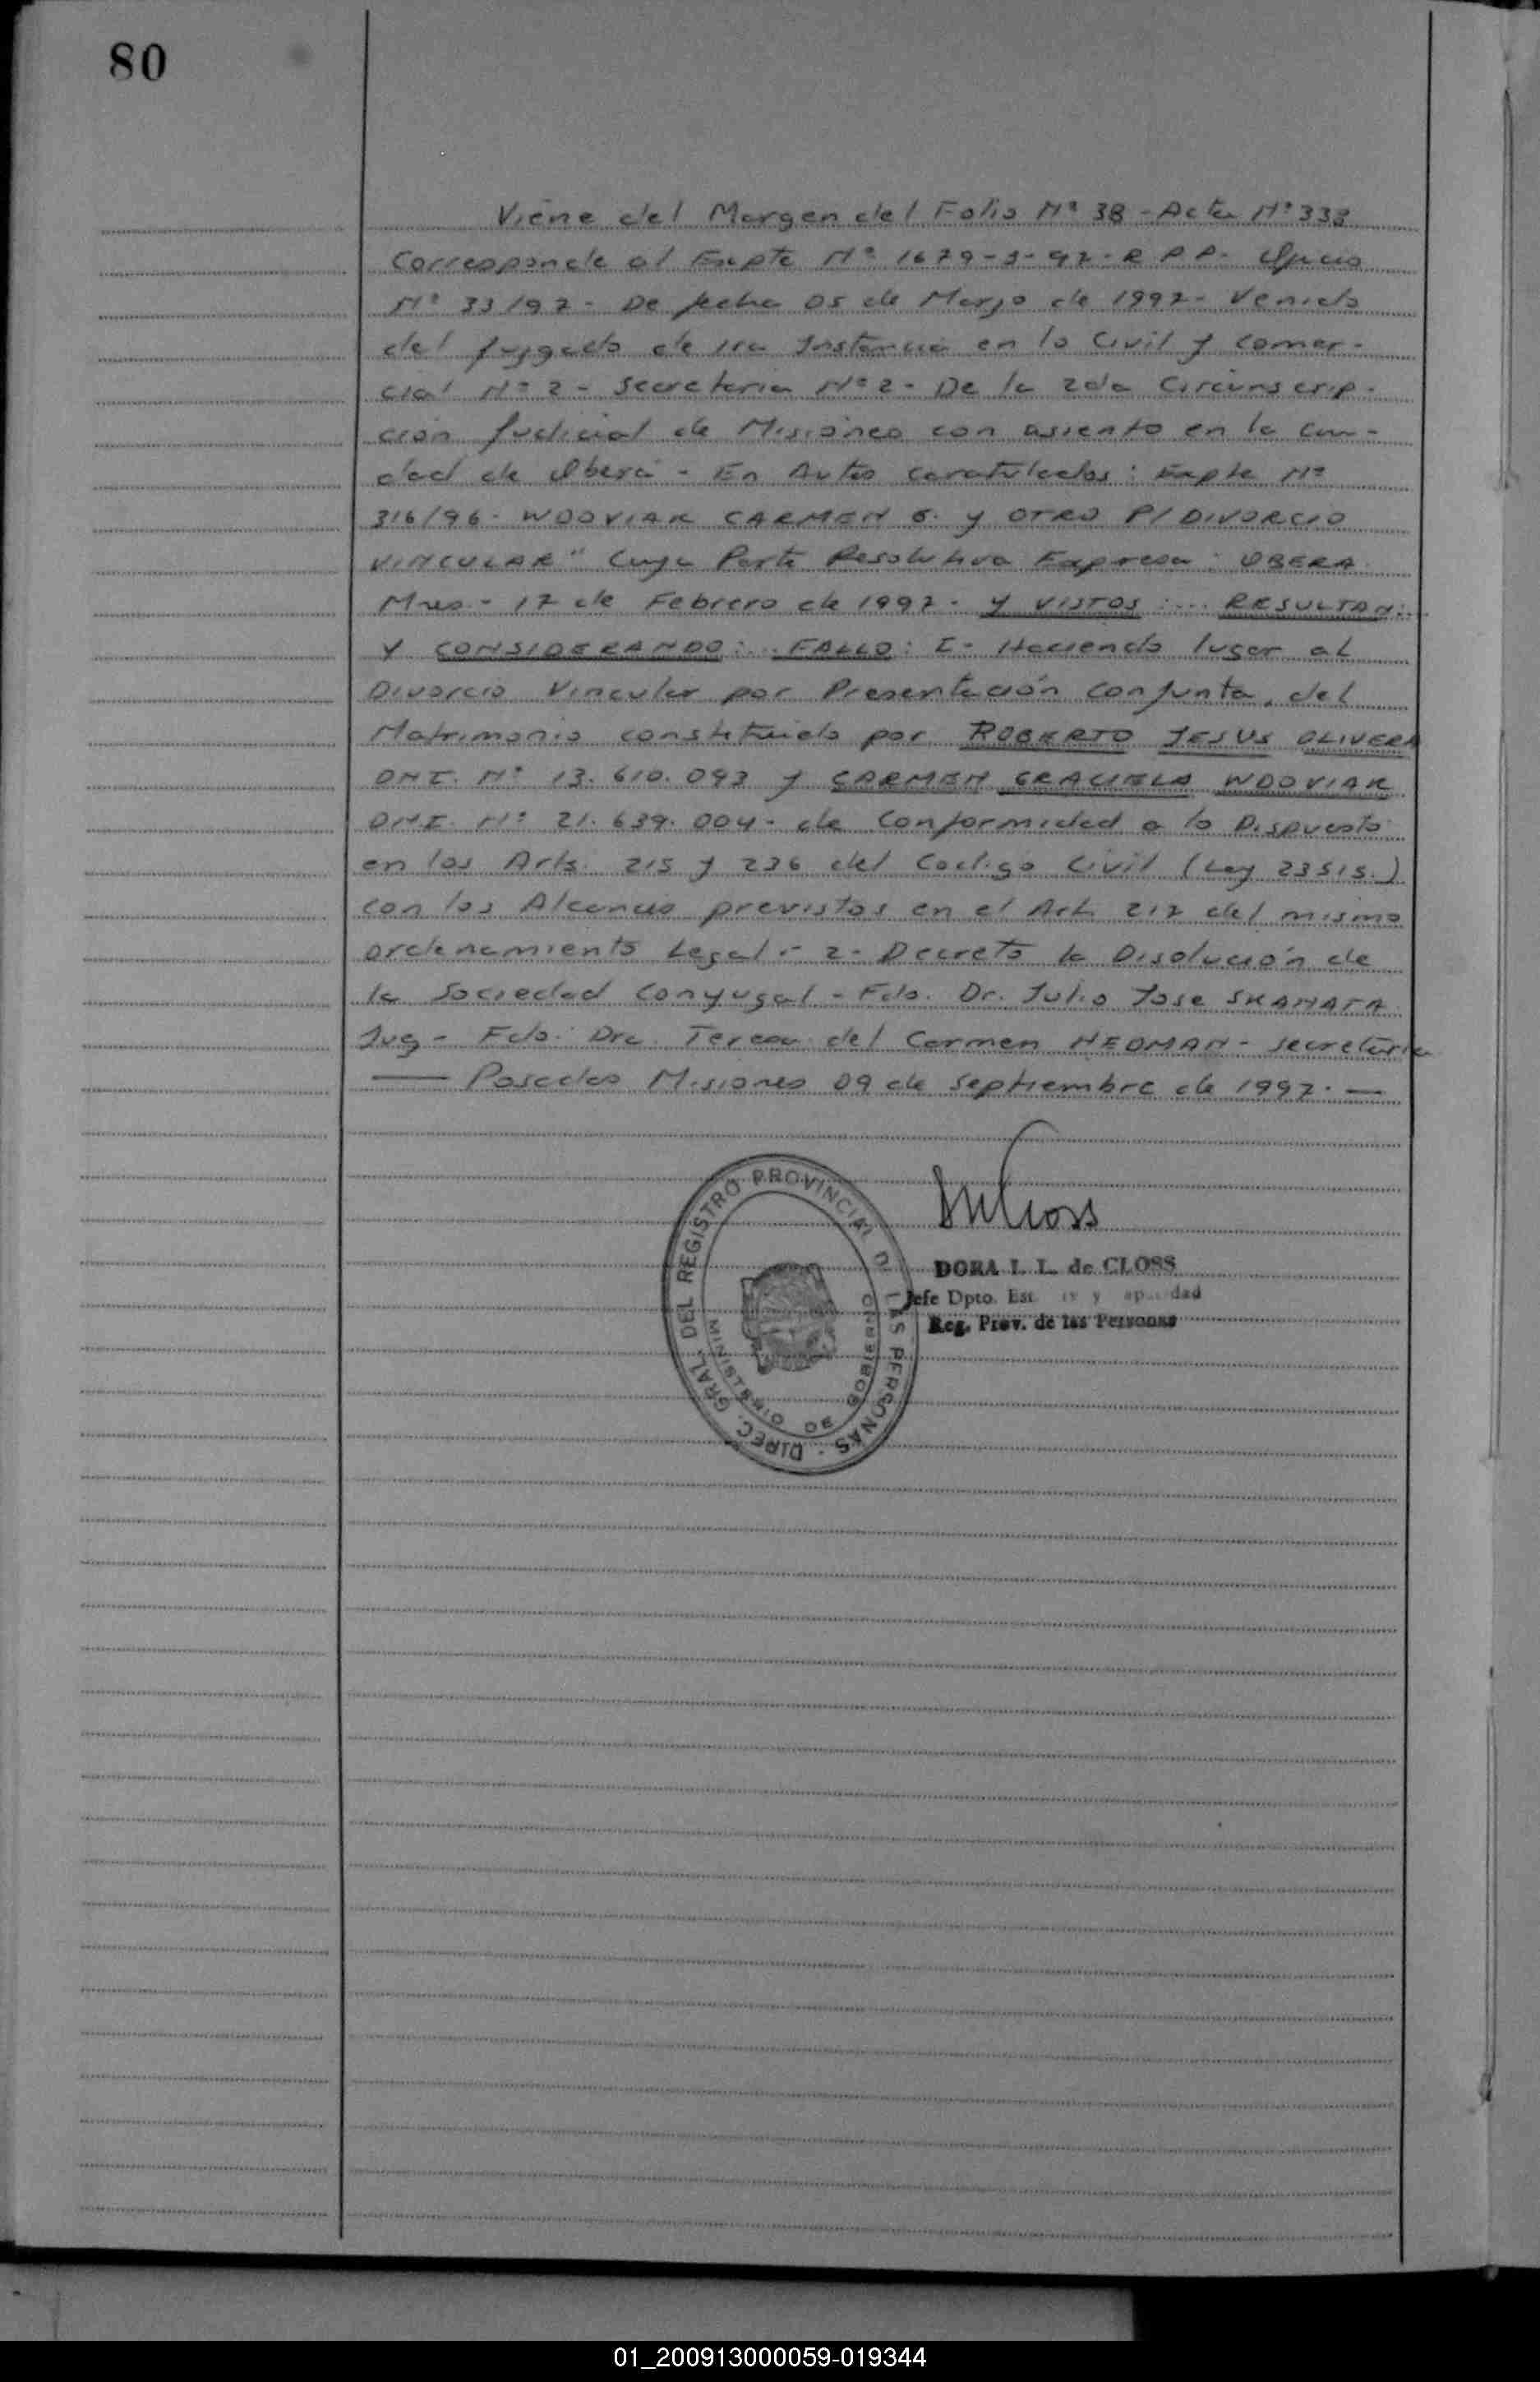 80
Viene del Margen del Folio Nº 38 - Acta Nº 333
Corresponde al Expte Nº 1679-S-97-R P P. Oficio
Nº 33/97 - De fecha 05 de Marzo de 1997- Venido
del Juzgado de 1ra Instancia en lo Civil y Comer-
cial Nº 2 - Secretaria Nº 2 - De la 2da Circunscrip-
ción Judicial de Misiones con asiento en la Ciu-
dad de Oberá - En Autos caratulados: Expte Nº
316/96 - WDOVIAK CARMEN G. y OTRO P/ DIVORCIO
VINCULAR" Cuya Parte Resolutiva Expresa: OBERA
Mnes - 17 de Febrero de 1997 - Y VISTOS:... RESULTAN:..
Y CONSIDERANDO:... FALLO: I- Haciendo lugar al
Divorcio Vincular por Presentación Conjunta, del
Matrimonio constituido por ROBERTO JESUS OLIVERA
DNI. Nº 13.610.093 y CARMEN GRACIELA WDOVIAK
DNI. Nº 21.639.004 - de Conformidad a lo Dispuesto
en los Arts. 215 y 236 del Codigo Civil (Ley 23515.)
con los Alcances previstos en el Art. 217 del mismo
ordenamiento Legal.- 2- Decreto la Disolución de
la Sociedad Conyugal - Fdo. Dr. Julio Jose SKANATA
Jug - Fdo. Dra. Teresa del Carmen HEDMAN - Secretaria
— Posadas Misiones 09 de Septiembre de 1997. —
DIREC. GRAL. DEL REGISTRO PROVINCIAL D LAS PERSONAS
MINISTERIO DE GOBIERNO
DORA I. L. de CLOSS
Jefe Dpto. Est. y
Reg. Prov. de las Personas
01_200913000059-019344